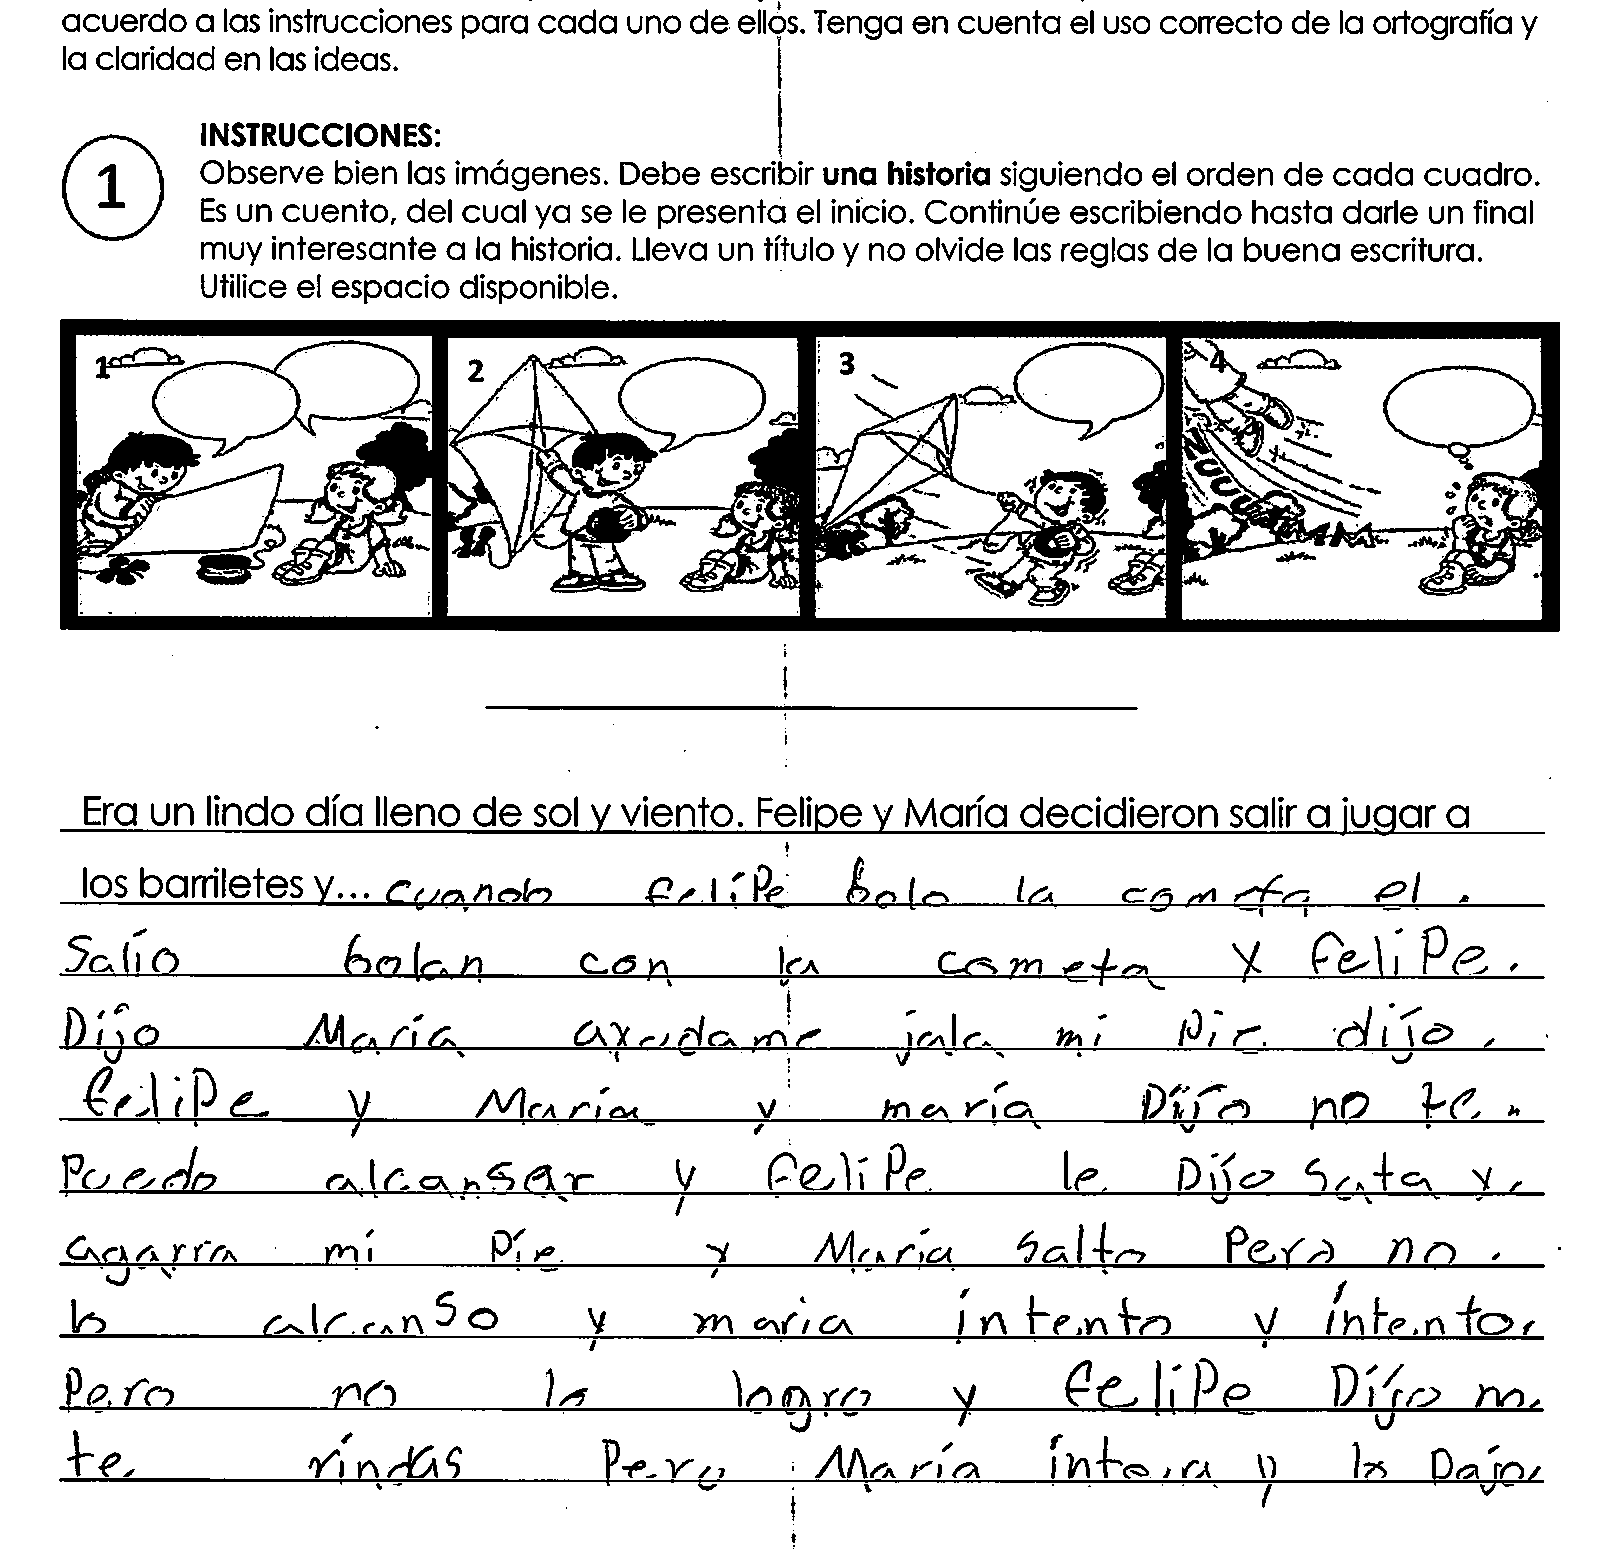 acuerdo a las instrucciones para cada uno de ellos. Tenga en cuenta el uso correcto de la ortografía y
la claridad en las ideas.
1
INSTRUCCIONES:
Observe bien las imágenes. Debe escribir una historia siguiendo el orden de cada cuadro.
Es un cuento, del cual ya se le presenta el inicio. Continúe escribiendo hasta darle un final
muy interesante a la historia. Lleva un título y no olvide las reglas de la buena escritura.
Utilice el espacio disponible.
1 2 3 4
ZUUUMMM
Era un lindo día lleno de sol y viento. Felipe y María decidieron salir a jugar a
los barriletes y... cuando felipe bolo la cometa el.
Salio bolan con la cometa y felipe.
Dijo María ayudame jala mi pie dijo.
felipe y María y maría Dijo no te.
Puedo alcansar y felipe le Dijo Sata y.
agarra mi Pie y María Salto Pero no.
lo alcanso y maria intento y intento.
Pero no lo logro y felipe Dijo
te rindas Pero María y lo Dajo.